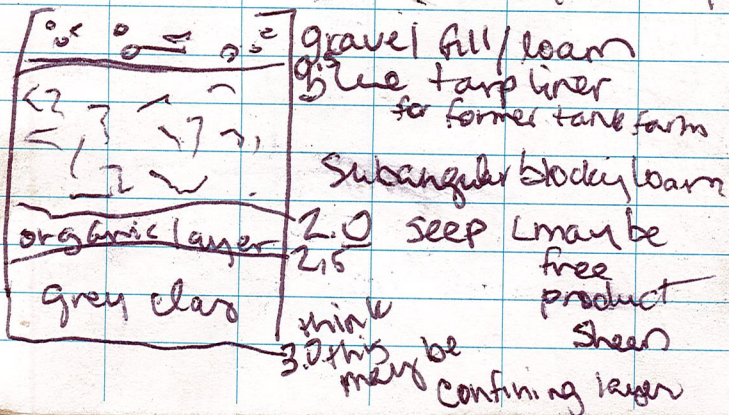 gravel fill/loam
0.5
blue tarp liner
for former tank farm
Subangular blocky loam
organic layer
2.0 seep (maybe
2.5
free
product
sheen
grey clay
think
3.0 this
may be
confining layer